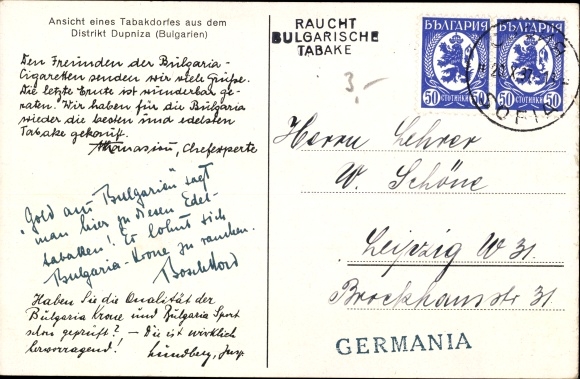 Ansicht eines Tabakdorfes aus dem
Distrikt Dupniza (Bulgarien)
Den Freunden der Bulgaria-
Cigaretten senden wir viele Grüße.
Die letzte Ernte ist wunderbar ge-
raten. Wir haben für die Bulgaria
wieder die besten und edelsten
Tabake gekauft.
Athanasiu, Chefexperte
"Gold aus Bulgarien" sagt
man hier zu diesen Edel-
tabaken! Es lohnt sich
Bulgaria-Krone zu rauchen.
Haben Sie die Qualität der
Bulgaria Krone und Bulgaria Sport
schon geprüft? - Die ist wirklich
hervorragend! Lundberg, Insp.
RAUCHT
BULGARISCHE
TABAKE
3,-
БЪЛГАРИЯ
50 СТОТИНКИ 50
БЪЛГАРИЯ
50 СТОТИНКИ 50
SOFIA
Herrn Lehrer
W. Schöne
Leipzig W 31.
Brockhausstr 31
GERMANIA